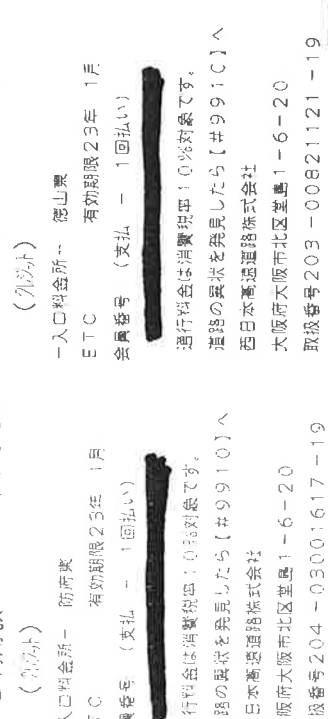 （クレジット）
ー入口料金所ー 徳山東
ETC 有効期限23年 1月
会員番号 （支払 － 1回払い）
通行料金は消費税率10%対象です。
道路の異状を発見したら【#9910】へ
西日本高速道路株式会社
大阪府大阪市北区堂島1-6-20
取扱番号203-00821121-19
（クレジット）
入口料金所ー 防府東
TC 有効期限23年 1月
員番号 （支払 － 1回払い）
行料金は消費税率10%対象です。
路の異状を発見したら【#9910】へ
日本高速道路株式会社
阪府大阪市北区堂島1-6-20
扱番号204-03001617-19